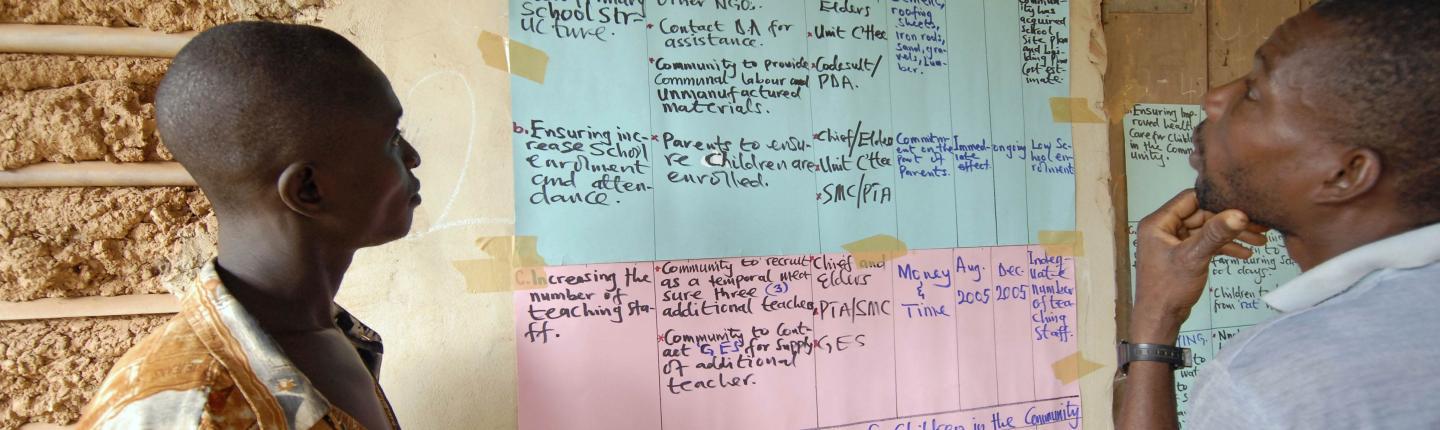 School str-
ucture.
Other NGO.
* Contact D.A for
assistance.
* Community to provide
Communal labour and
Unmanufactured
materials.
Elders
* Unit C'ttee
* Codesult/
PDA.
roofing
sheets,
iron rods,
sand, gra-
vels, lum-
ber.
acquired
school
Site plan
b. Ensuring inc-
rease School
enrolment
and atten-
dance.
* Parents to ensu-
re Children are
enrolled.
* Chief/Elders
* Unit C'ttee
* SMC/PTA
Commitm-
ent on the
part of
Parents.
Immed-
iate
effect
ongoing
Low Sc-
hool en-
rolment
C. Increasing the
number of
teaching sta-
ff.
* Community to recruit
as a temporal mea-
sure three (3)
additional teachers
* Community to Cont-
act GES for supply
of additional
teacher.
* Chief and
Elders
* PTA/SMC
* GES
Money
&
Time
Aug.
2005
Dec.
2005
Inadeq-
uate
number
of tea-
ching
Staff.
Children in the Community
Ensuring Imp-
roved health
Care for Childr
in the Comm
unity.
during sc
ool days.
* Children t
from